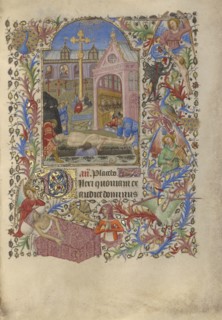 Placebo
Dilexi quoniam ex
audiet dominus